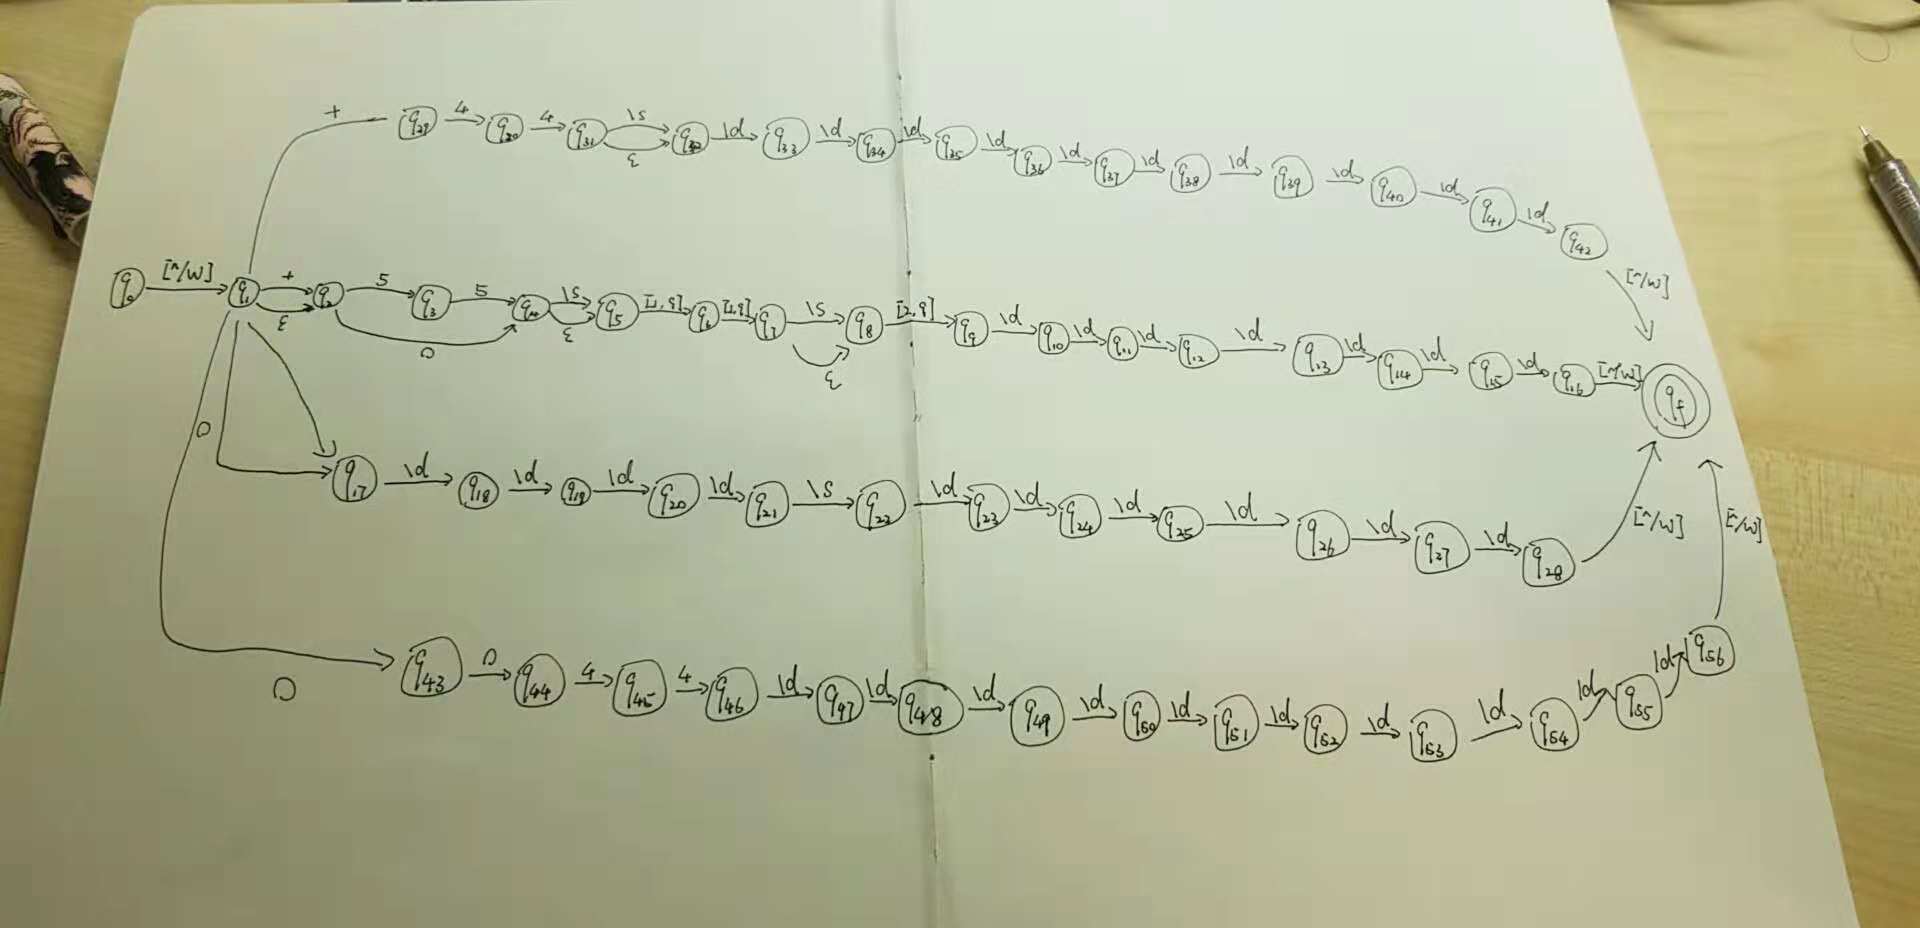 + q29 4 q30 4 q31 \s ε q32 \d q33 \d q34 \d q35 \d q36 \d q37 \d q38 \d q39 \d q40 \d q41 \d q42 [^/w]
q0 [^/w] q1 + ε q2 5 q3 5 0 q4 \s ε q5 [1,9] q6 [1,9] q7 \s ε q8 [2,9] q9 \d q10 \d q11 \d q12 \d q13 \d q14 \d q15 \d q16 [^/w] qf
0 q17 \d q18 \d q19 \d q20 \d q21 \s q22 \d q23 \d q24 \d q25 \d q26 \d q27 \d q28 [^/w] [^/w]
0 q43 0 q44 4 q45 4 q46 \d q47 \d q48 \d q49 \d q50 \d q51 \d q52 \d q53 \d q54 \d q55 \d q56